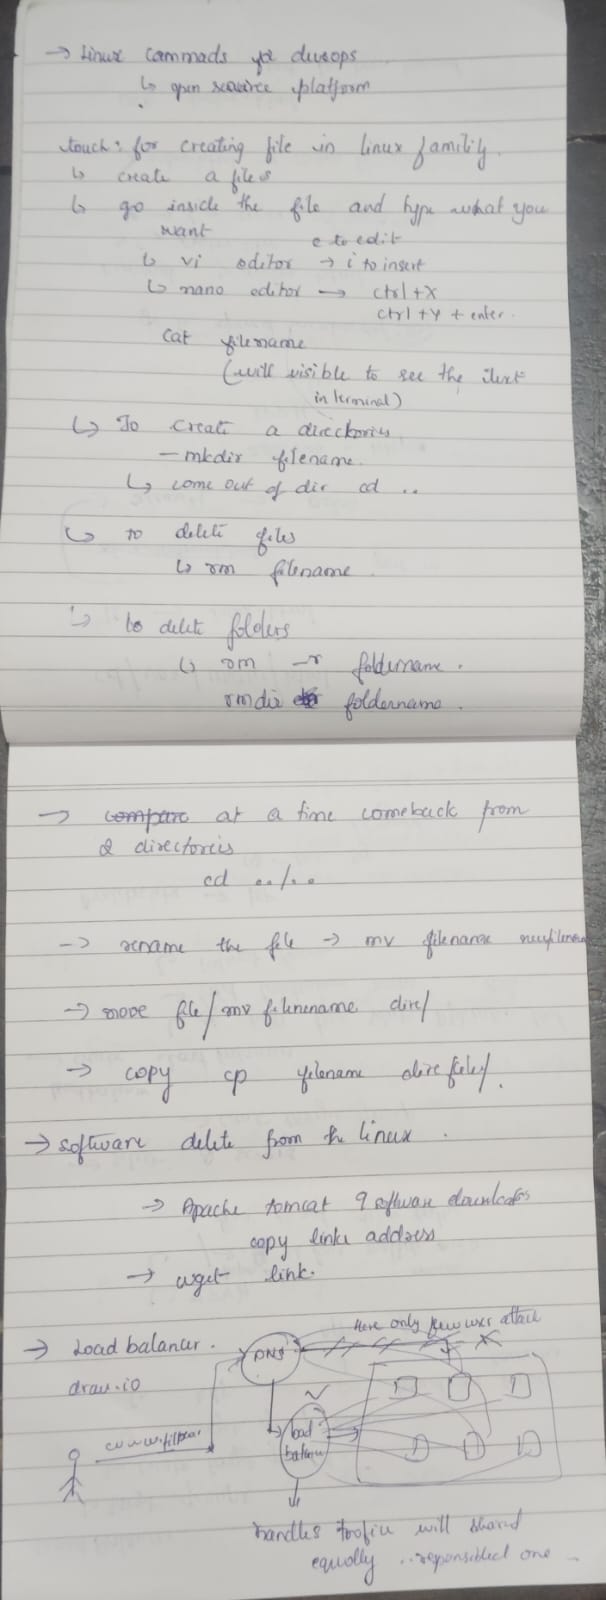 → Linux commads for devops
↳ open source platform
touch: for creating file in linux family.
↳ create a files
↳ go inside the file and type what you
want
e to edit
↳ vi editor → i to insert
↳ nano editor → ctrl+X
ctrl + Y + enter.
cat filename
(will visible to see the text
in terminal)
↳ To create a directories
- mkdir filename.
↳ come out of dir cd ..
↳ to delete files
↳ rm filename
↳ to delete folders
↳ rm -r foldername.
rmdir foldername.
→ compare at a time comeback from
2 directories
cd ../..
→ rename the file → mv filename newfilename
→ move file/mv filenename dire/
→ copy cp filename
→ software delete from the linux.
→ Apache tomcat 9 software downloads
copy link address
→ wget link.
→ Load balancer.
draw.io
Here only few
DNS
load
balancer
handles will shared
equally .. one